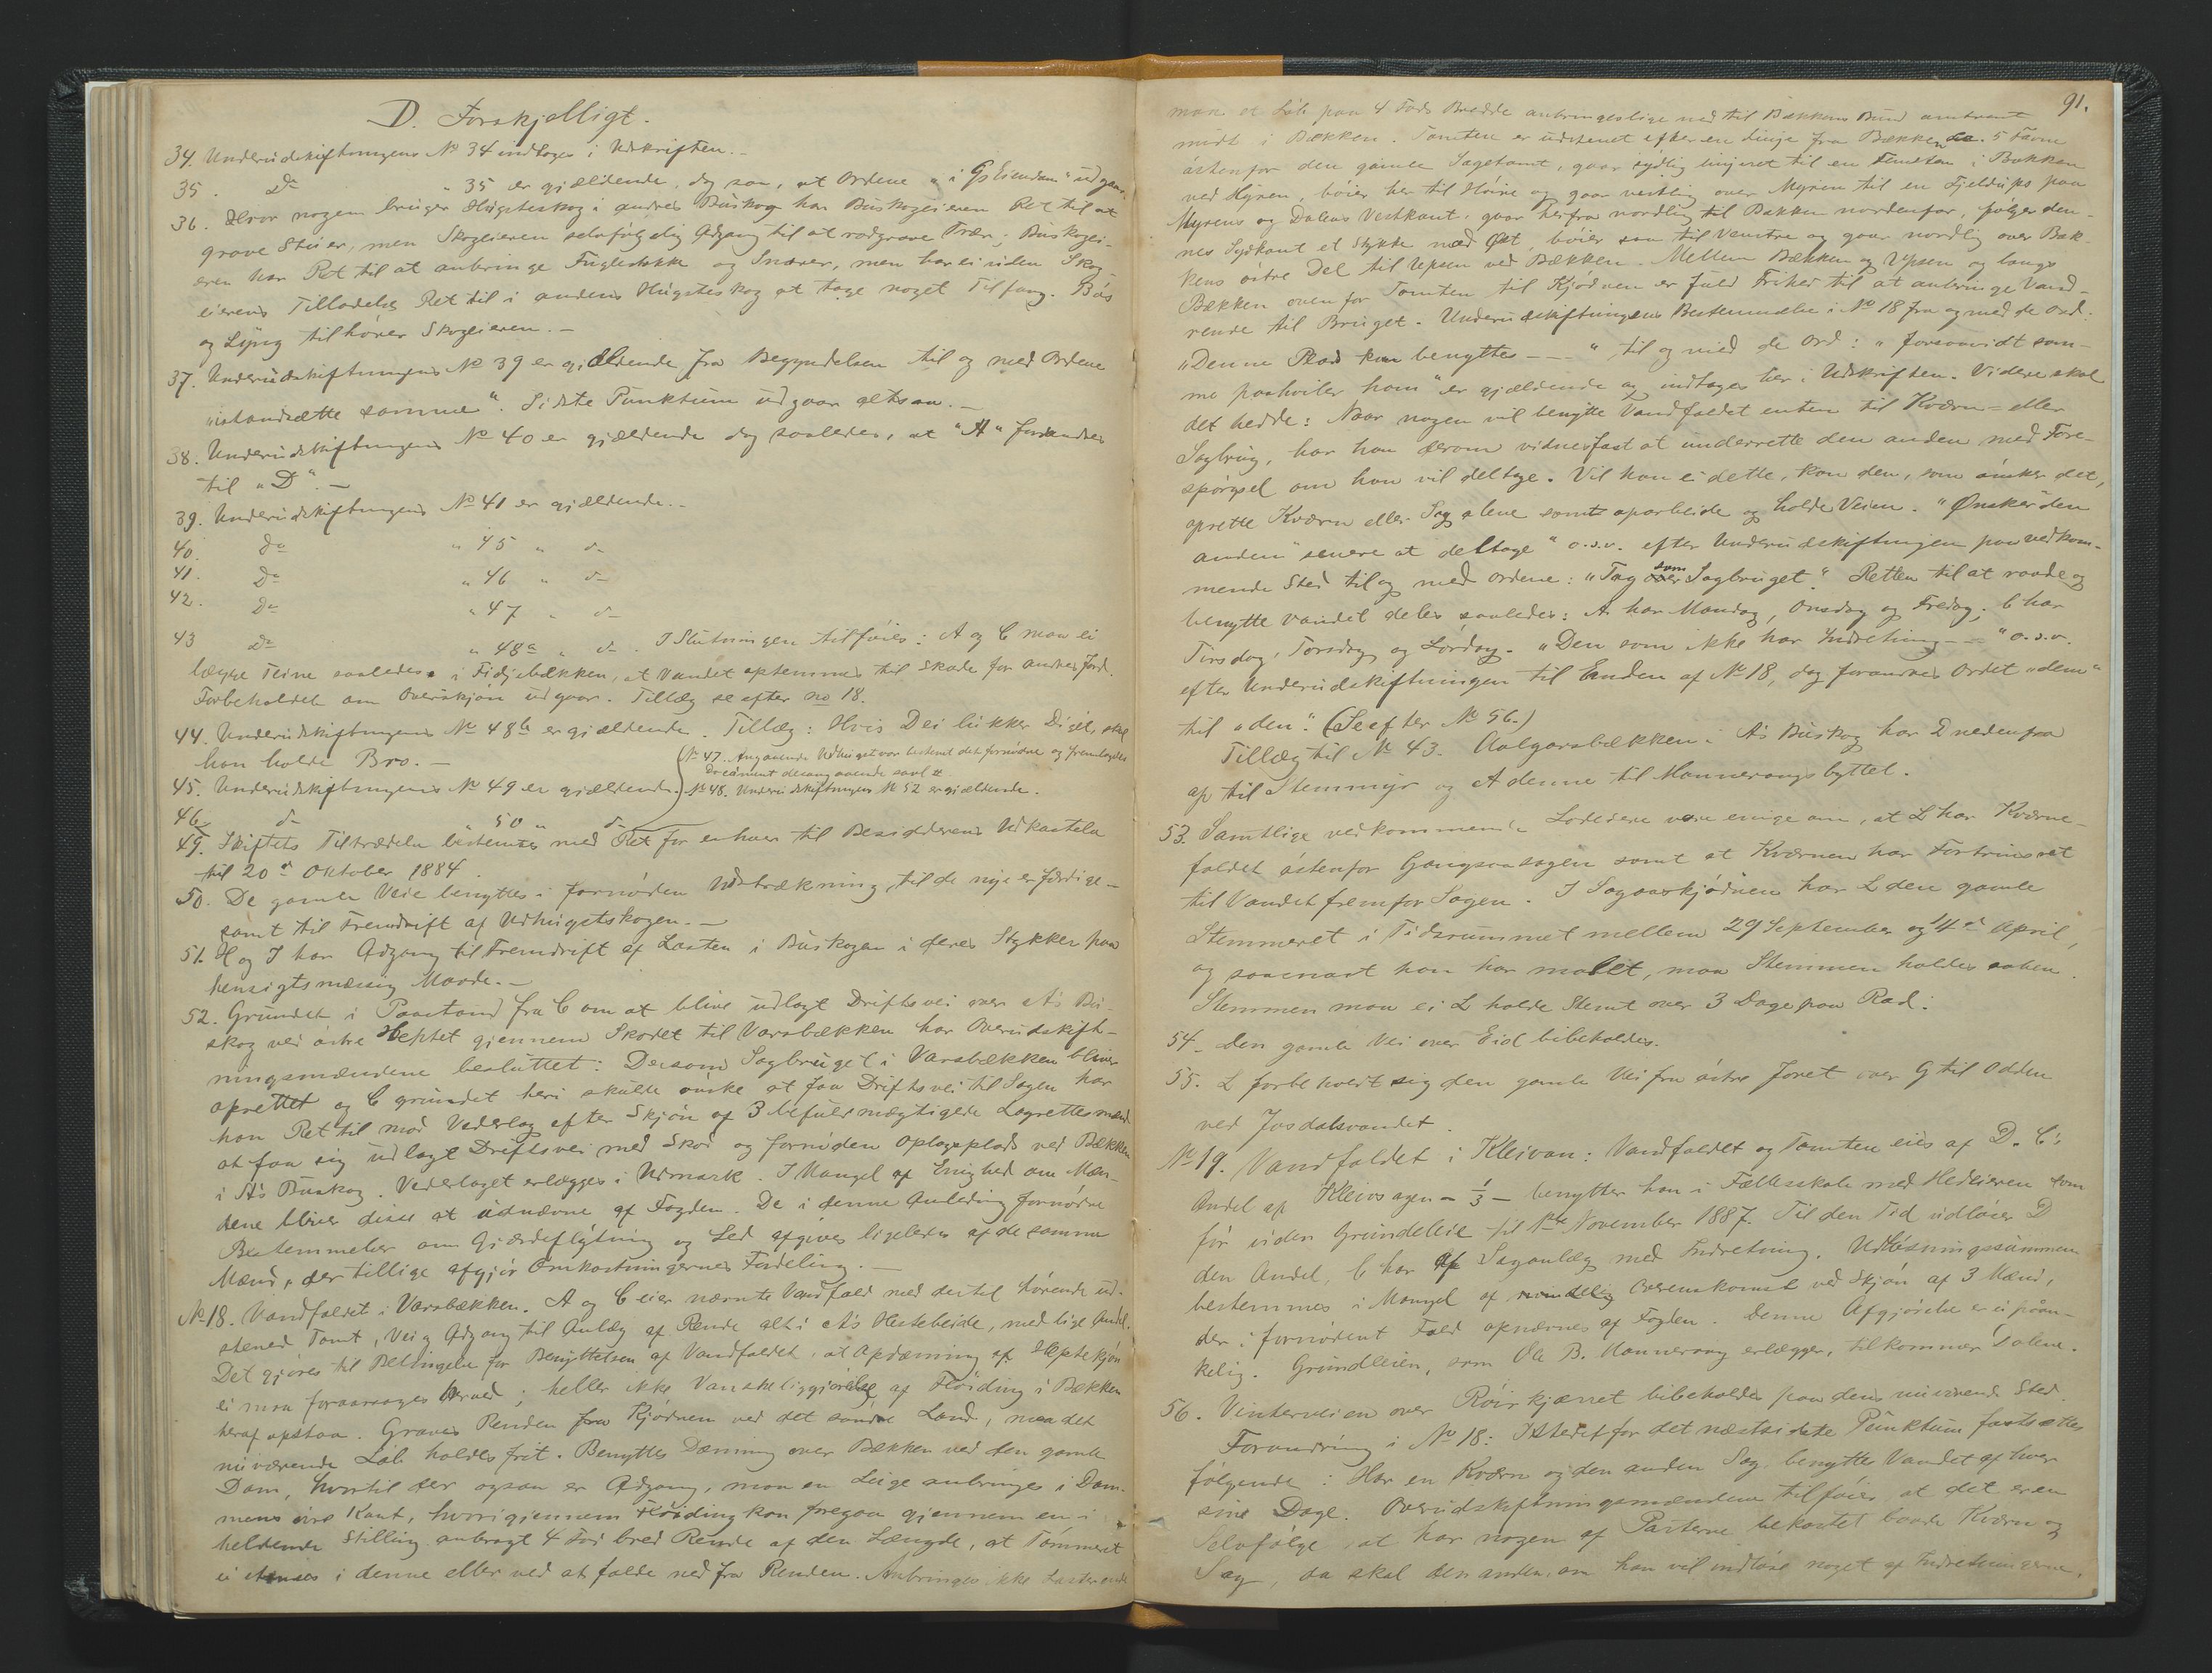 D. Forskjelligt.
34. Underudskiftningens No 34 indtages i Udskriften.-
35. Do " 35 er gjældende, dog saa, at Ordene "i Gs Eiendom" udgaar.
36. Hvor nogen bruger Hugsteskog i andres Buskog har Buskogeieren Ret til at
grave Stuer, men Skogeieren selvfølgelig Adgang til at rodgrave Trær; Buskogei-
eren har Ret til at anbringe Fuglestokke og Snarer, men har ei uden Skog-
eierens Tilladelse Ret til i andens Hugsteskog at tage noget Tilfang. Bøs
og Lyng tilhører Skogeieren.-
37. Underudskiftningens No 39 er gjældende fra Begyndelsen til og med Ordene
"istandsætte samme". Sidste Punktum udgaar altsaa.-
38. Underudskiftningens No 40 er gjældende dog saaledes, at "A" forandres
til "D".-
39. Underudskiftningens No 41 er gjældende.-
40. do " 45 " do
41. Do " 46 " do
42. Do " 47 " do
43 do " 48a " do. I Slutningen tilføies: A og C maa ei
lægge Teine saaledes i Fidjebækken, at Vandet opstemmes til Skade for andres Jord.
Forbeholdet om Overskjøn udgaar. Tillæg se efter no 18.
44. Underudskiftningens No 48b er gjældende. Tillæg: Hvis D ei lukker Diget, skal
han holde Bro.-
No 47. Angaaende Udhugst var bestemt det fornødne og fremlagdes
Document desangaaende
45. Underudskiftningens No 49 er gjældende. No 48. Underudskiftningens No 52 er gjældende.
46 do " 50 " do
49. Skiftets Tiltrædelse bestemtes med Ret for enhver til Besidderens Udkastelse
til 20de Oktober 1884.
50. De gamle Veie benyttes i fornøden Udstrækning, til de nye er færdige-
samt til Fremdrift af Udhugstskogen.-
51. H og I har Adgang til Fremdrift af Lasten i Buskogen i deres Stykker paa
hensigtsmæssig Maade.-
52. Grundet i Paastand fra C om at blive udlagt Driftsvei over A's Bu-
skog ved østre Heptet gjennem Skaret til Varsbækken har Overudskift-
ningsmændene besluttet: Dersom Sagbruget i Varsbækken bliver
oprettet og C grundet heri skulde ønske at faa Driftsvei til Sagen har
han Ret til mod Vederlag efter Skjøn af 3 befuldmægtigede Lagrettesmænd
at faa sig udlagt Driftsvei med Skod og fornøden Oplagsplads ved Bækken
i A's Buskog. Vederlaget erlægges i Udmark. I Mangel af Enighed om Mæn-
dene bliver disse at udnævne af Fogden. De i denne Anledning fornødne
Bestemmelser om Gjærdeflytning og Led afgives ligeledes af de samme
Mænd, der tillige afgjør Omkostningernes Fordeling.-
No 18. Vandfaldet i Varsbækken. A og C eier nævnte Vandfald med dertil hørende ud-
stened Tomt, Vei og Adgang til Anlæg af Rende alt i A's Hestebeide, med lige Andel.
Det gjøres til Betingelse for Benyttelsen af Vandfaldet, at Opdæmning af Heptekjøn
ei maa foraarsages herved; heller ikke Vanskeliggjørelse af Fløiding i Bækken
heraf opstaa. Graves Renden fra Kjødnen ved det søndre Land, maa det
nuværende Løb holdes frit. Benyttes Dæmning over Bækken ved den gamle
Dam, hvortil der ogsaa er Adgang, maa en Luge anbringes i Dam-
mens øvre Kant, hvorigjennem Fløiding kan foregaa gjennem en i
heldende Stilling anbragt 4 Fod bred Rende af den Længde, at Tømmeret
ei standses i denne eller ved at falde ned fra Renden. Anbringes ikke
91.
maa et Løb paa 4 Fods Bredde anbringes lige ned til Bækkens Bund omtrent
midt i Bækken. Tomten er udstenet efter en Linje fra Bækken ca. 5 Favne
østenfor den gamle Sagetomt, gaar sydlig linjeret til en Sten i Bakken
ved Myren, bøier her til Høire og gaar vestlig over Myren til en Fjeldups paa
Myrens og Dalens Vestkant, gaar herfra nordlig til Bakken nordenfor, følger den-
nes Sydkant et Stykke mod Øst, bøier saa til Venstre og gaar nordlig over Bak-
kens østre Del til Upsen ved Bækken. Mellem Bækken og Upsen og langs
Bækken ovenfor Tomten til Kjødnen er fuld Frihed til at anbringe Vand-
rende til Bruget. Underudskiftningens Bestemmelse i No 18 fra og med de Ord:
"Denne Plads kan benyttes -- " til og med de Ord: "forsaavidt sam-
me paahviler ham" er gjældende og indtages her i Udskriften. Videre skal
det hedde: Naar nogen vil benytte Vandfaldet enten til Kværn- eller
Sagbrug, har han derom vidnesfast at underrette den anden med Fore-
spørgsel om han vil deltage. Vil han ei dette, kan den, som ønsker det,
oprette Kværn eller Sag alene samt oparbeide og holde Veien. "Ønsker den
anden senere at deltage" o.s.v. efter Underudskiftningen paa vedkom-
mende Sted til og med Ordene: "Tag som over Sagbruget". Retten til at raade og
benytte Vandet deles saaledes: A har Mandag, Onsdag og Fredag, C har
Tirsdag, Torsdag og Lørdag. "Den som ikke har Indretning -- " o.s.v.
efter Underudskiftningen til Enden af No 18, dog forandres Ordet "dem"
til "den". (Se efter No 56.)
Tillæg til No 43. Aalgarsbækken i A's Buskog har D nedenfra
op til Stemmyr og A denne til Mannerangsbyttet.
53. Samtlige vedkommende Lodeiere vare enige om, at L har Kværne-
faldet østenfor Gangsaasagen samt at Kværnen har Fortrinsret
til Vandet fremfor Sagen. I Sagaaskjødnen har L den gamle
Stemmeret i Tidsrummet mellem 29 September og 14de April,
og saasnart han har malet, maa Stemmen holdes aaben.
Stemmen maa ei L holde Stemt over 3 Dage paa Rad.
54. Den gamle Vei over Eid bibeholdes.
55. L forbeholdt sig den gamle Vei fra østre Joret over G til Odden
ved Josdalsvandet.
No 19. Vandfaldet i Kleivan: Vandfaldet og Tomten eies af D. C's
Andel af Kleivsagen - 1/3 - benytter han i Fællesskab med Medeieren som
før uden Grundeleie til 1ste November 1887. Til den Tid udløser D
den Andel, C har af Saganlæg med Indretning. Udløsningssummen
bestemmes i Mangel af mindelig Overenskomst ved Skjøn af 3 Mænd,
der i fornødent Fald opnævnes af Fogden. Denne Afgjørelse er ei paaan-
kelig. Grundleien, som Ole B. Mannerang erlægger, tilkommer D alene.
56. Vinterveien over Røirkjærret bibeholdes paa dens nuværende Sted.
Forandring i No 18: Istedetfor det næstsidste Punktum fastsættes
følgende: Har en Kværn og den anden Sag, benyttes Vandet af hver
sine Dage. Overudskiftningsmændene tilføier, at det er en
Selvfølge, at har nogen af Parterne bekostet baade Kværn og
Sag, da skal den anden, om han vil indløse noget af Indretningerne,